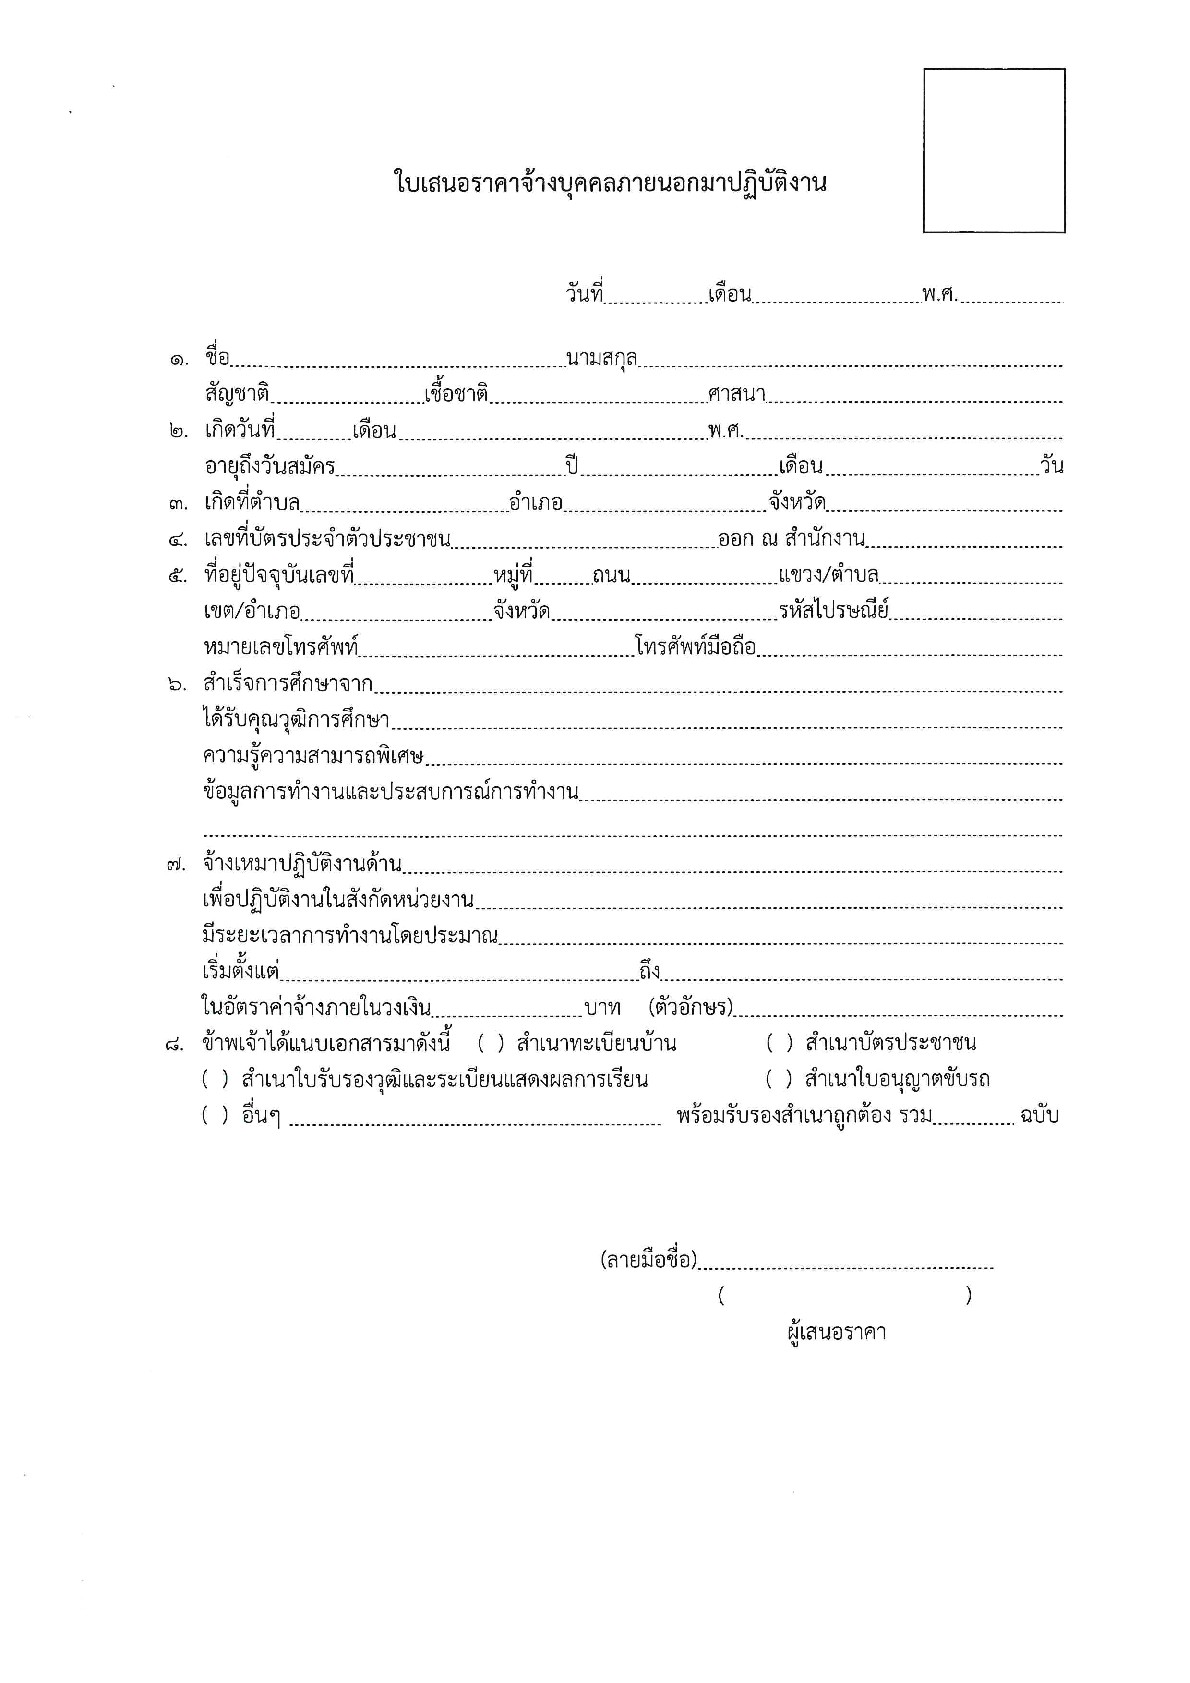 ใบเสนอราคาจ้างบุคคลภายนอกมาปฏิบัติงาน
วันที่................เดือน..........................พ.ศ.................
๑. ชื่อ....................................................นามสกุล.................................................................
สัญชาติ........................เชื้อชาติ..................................ศาสนา.............................................
๒. เกิดวันที่............เดือน................................................พ.ศ.................................................
อายุถึงวันสมัคร....................................ปี...............................เดือน..................................วัน
๓. เกิดที่ตำบล.................................อำเภอ................................จังหวัด.....................................
๔. เลขที่บัตรประจำตัวประชาชน..........................................ออก ณ สำนักงาน...............................
๕. ที่อยู่ปัจจุบันเลขที่......................หมู่ที่.........ถนน.......................แขวง/ตำบล.............................
เขต/อำเภอ..............................จังหวัด...................................รหัสไปรษณีย์...........................
หมายเลขโทรศัพท์...........................................โทรศัพท์มือถือ................................................
๖. สำเร็จการศึกษาจาก.............................................................................................................
ได้รับคุณวุฒิการศึกษา..........................................................................................................
ความรู้ความสามารถพิเศษ....................................................................................................
ข้อมูลการทำงานและประสบการณ์การทำงาน...........................................................................
........................................................................................................................................
๗. จ้างเหมาปฏิบัติงานด้าน........................................................................................................
เพื่อปฏิบัติงานในสังกัดหน่วยงาน............................................................................................
มีระยะเวลาการทำงานโดยประมาณ........................................................................................
เริ่มตั้งแต่.........................................................ถึง...............................................................
ในอัตราค่าจ้างภายในวงเงิน........................บาท (ตัวอักษร)....................................................
๘. ข้าพเจ้าได้แนบเอกสารมาดังนี้ ( ) สำเนาทะเบียนบ้าน ( ) สำเนาบัตรประชาชน
( ) สำเนาใบรับรองวุฒิและระเบียนแสดงผลการเรียน ( ) สำเนาใบอนุญาตขับรถ
( ) อื่นๆ ........................................................... พร้อมรับรองสำเนาถูกต้อง รวม............. ฉบับ
(ลายมือชื่อ)...............................................
( )
ผู้เสนอราคา